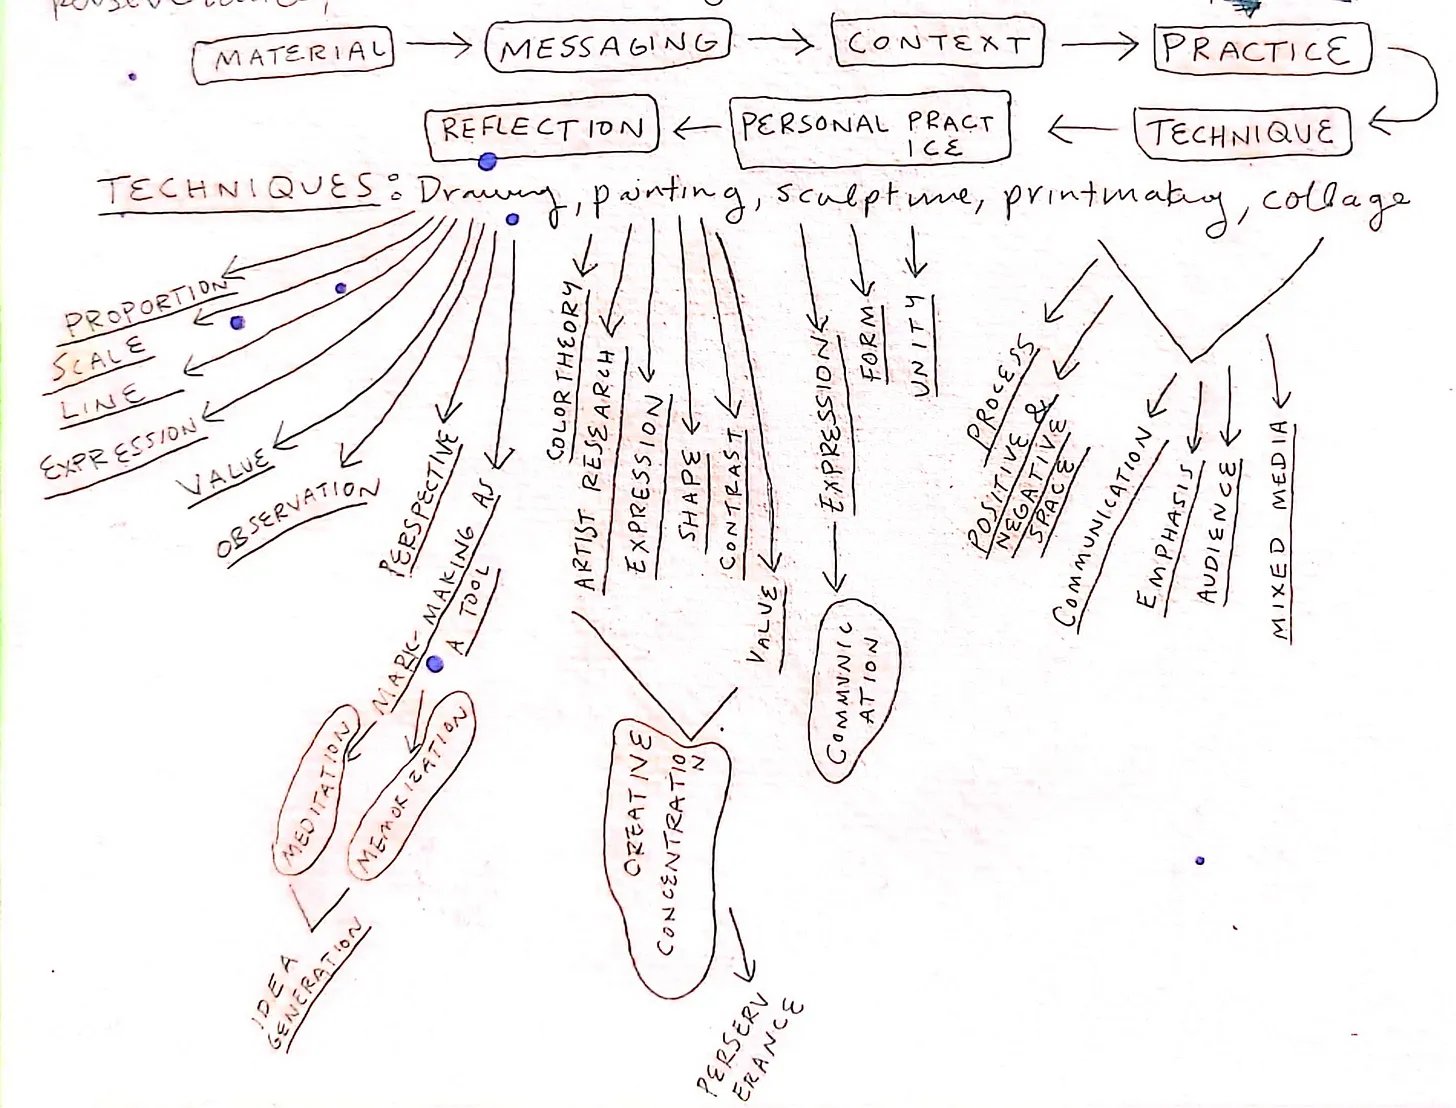 MATERIAL → MESSAGING → CONTEXT → PRACTICE
REFLECTION ← PERSONAL PRACT ← TECHNIQUE
ICE
TECHNIQUES: Drawing, painting, sculpture, printmaking, collage
PROPORTION
SCALE
LINE
EXPRESSION
VALUE
OBSERVATION
PERSPECTIVE
MARK-MAKING AS
A TOOL
MEDITATION
MEMORIZATION
IDEA
GENERATION
COLORTHEORY
ARTIST RESEARCH
EXPRESSION
SHAPE
CONTRAST
VALUE
CREATIVE
CONCENTRATIO
N
PERSERV
ERANCE
EXPRESSION
COMMUNIC
ATION
FORM
UNITY
PROCESS
POSITIVE &
NEGATIVE
SPACE
COMMUNICATION
EMPHASIS
AUDIENCE
MIXED MEDIA